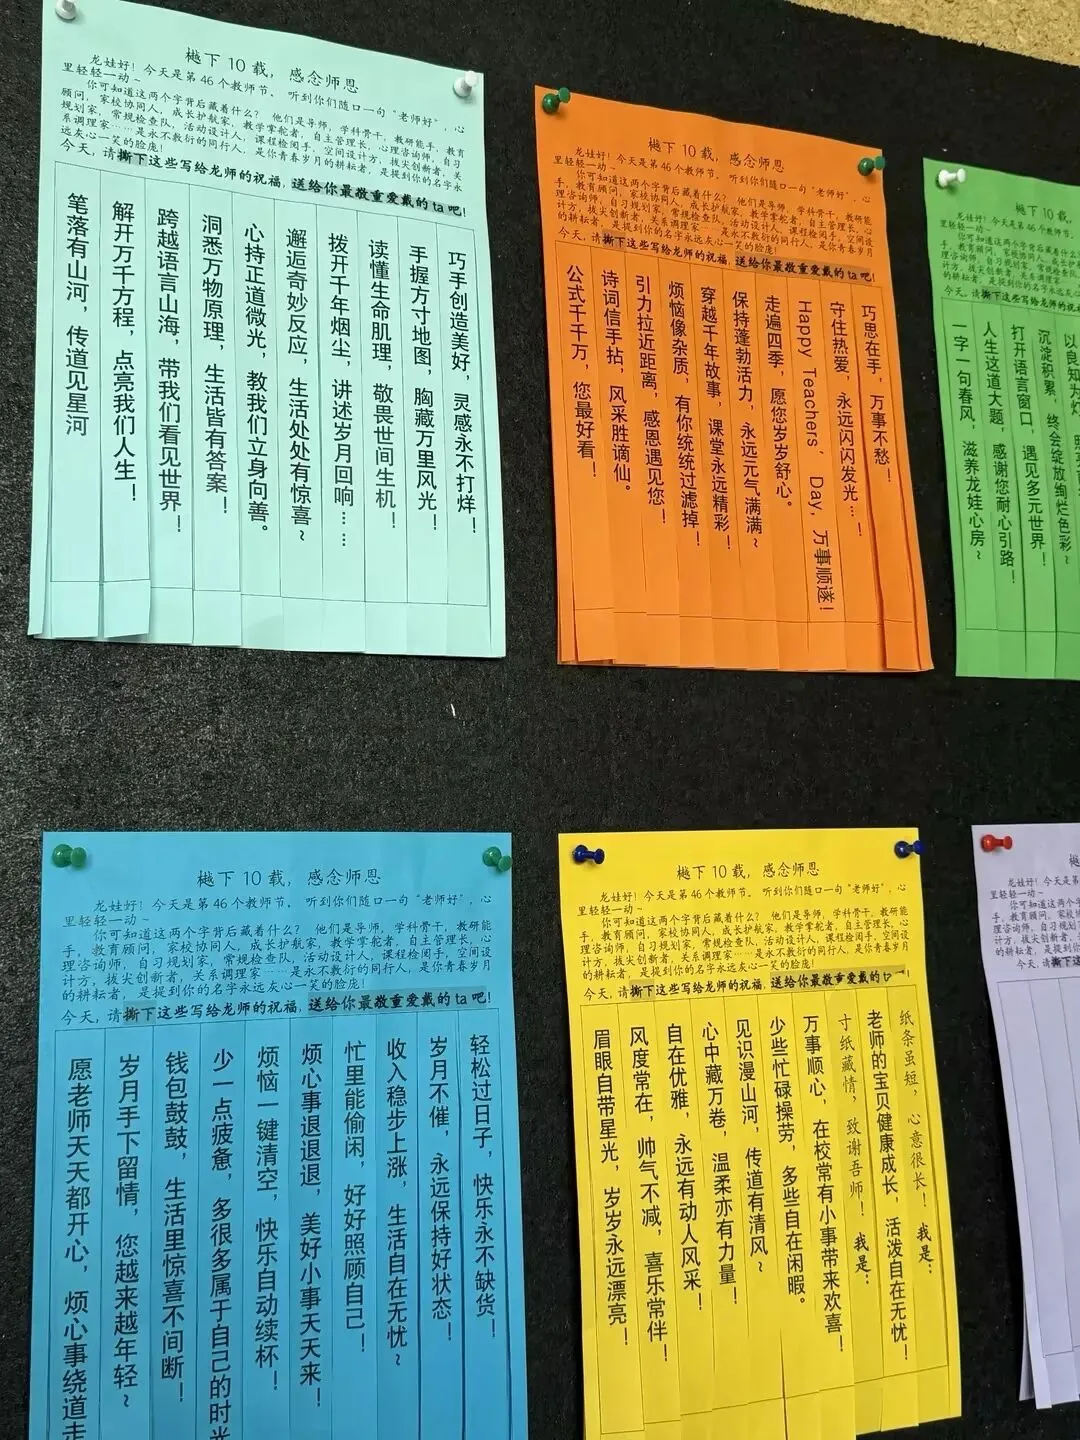 樾下10载，感念师恩
龙娃好！今天是第46个教师节，听到你们随口一句“老师好”，心
里轻轻一动~
你可知道这两个字背后藏着什么？他们是导师，学科骨干，教研能手，教育
顾问，家校协同人，成长护航家，教学掌舵者，自主管理长，心理咨询师，自习
规划家，常规检查队，活动设计人，课程检阅手，空间设计方，拔尖创新者，关
系调理家……是永不敷衍的同行人，是你青春岁月的耕耘者，是提到你的名字永
远灰心一笑的脸庞！
今天，请撕下这些写给龙师的祝福，送给你最敬重爱戴的ta吧！
笔落有山河，传道见星河
解开万千方程，点亮我们人生！
跨越语言山海，带我们看见世界！
洞悉万物原理，生活皆有答案！
心持正道微光，教我们立身向善。
邂逅奇妙反应，生活处处有惊喜~
拨开千年烟尘，讲述岁月回响……
读懂生命肌理，敬畏世间生机！
手握方寸地图，胸藏万里风光！
巧手创造美好，灵感永不打烊！
樾下10载，感念师恩
龙娃好！今天是第46个教师节，听到你们随口一句“老师好”，心
里轻轻一动~
你可知道这两个字背后藏着什么？他们是导师，学科骨干，教研能
手，教育顾问，家校协同人，成长护航家，教学掌舵者，自主管理长，心
理咨询师，自习规划家，常规检查队，活动设计人，课程检阅手，空间设
计方，拔尖创新者，关系调理家……是永不敷衍的同行人，是你青春岁月
的耕耘者，是提到你的名字永远灰心一笑的脸庞！
今天，请撕下这些写给龙师的祝福，送给你最敬重爱戴的ta吧！
公式千千万，您最好看！
诗词信手拈，风采胜谪仙。
引力拉近距离，感恩遇见您！
烦恼像杂质，有你统统过滤掉！
穿越千年故事，课堂永远精彩！
保持蓬勃活力，永远元气满满~
走遍四季，愿您岁岁舒心。
Happy Teachers' Day，万事顺遂！
守住热爱，永远闪闪发光…！
巧思在手，万事不愁！
樾下10载，
龙娃好！今天是第46个教师
里轻轻一动~
今天，请撕下这些写给龙师的祝
一字一句春风，滋养龙娃心房~
人生这道大题，感谢您耐心引路！
打开语言窗口，遇见多元世界！
沉淀积累，终会绽放绚烂色彩~
以良知为灯
樾下10载，感念师恩
龙娃好！今天是第46个教师节，听到你们随口一句“老师好”，心
里轻轻一动~
你可知道这两个字背后藏着什么？他们是导师，学科骨干，教研能
手，教育顾问，家校协同人，成长护航家，教学掌舵者，自主管理长，心
理咨询师，自习规划家，常规检查队，活动设计人，课程检阅手，空间设
计方，拔尖创新者，关系调理家……是永不敷衍的同行人，是你青春岁月
的耕耘者，是提到你的名字永远灰心一笑的脸庞！
今天，请撕下这些写给龙师的祝福，送给你最敬重爱戴的ta吧！
愿老师天天都开心，烦心事绕道走
岁月手下留情，您越来越年轻~
钱包鼓鼓，生活里惊喜不间断！
少一点疲惫，多很多属于自己的时光
烦恼一键清空，快乐自动续杯！
烦心事退退退，美好小事天天来！
忙里能偷闲，好好照顾自己！
收入稳步上涨，生活自在无忧~
岁月不催，永远保持好状态！
轻松过日子，快乐永不缺货！
樾下10载，感念师恩
龙娃好！今天是第46个教师节，听到你们随口一句“老师好”，心
里轻轻一动~
你可知道这两个字背后藏着什么？他们是导师，学科骨干，教研能
手，教育顾问，家校协同人，成长护航家，教学掌舵者，自主管理长，心
理咨询师，自习规划家，常规检查队，活动设计人，课程检阅手，空间设
计方，拔尖创新者，关系调理家……是永不敷衍的同行人，是你青春岁月
的耕耘者，是提到你的名字永远灰心一笑的脸庞！
今天，请撕下这些写给龙师的祝福，送给你最敬重爱戴的ta吧！
眉眼自带星光，岁岁永远漂亮！
风度常在，帅气不减，喜乐常伴！
自在优雅，永远有动人风采！
心中藏万卷，温柔亦有力量！
见识漫山河，传道有清风~
少些忙碌操劳，多些自在闲暇。
万事顺心，在校常有小事带来欢喜！
寸纸藏情，致谢吾师！我是：
老师的宝贝健康成长，活泼自在无忧！
纸条虽短，心意很长！我是：
龙娃好！今天是第
里轻轻一动~
你可知道这两个字
手，教育顾问，家校协
理咨询师，自习规划家
计方，拔尖创新者，
的耕耘者，是提到
今天，请撕下这